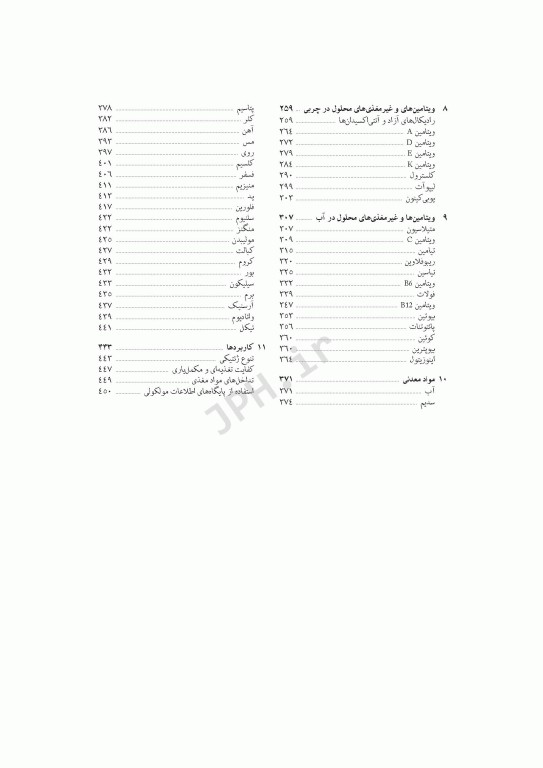 ۸ ویتامین‌های و غیرمغذی‌های محلول در چربی ... ۲۵۹
رادیکال‌های آزاد و آنتی‌اکسیدان‌ها ... ۲۵۹
ویتامین A ... ۲۶۴
ویتامین D ... ۲۷۲
ویتامین E ... ۲۷۹
ویتامین K ... ۲۸۴
کلسترول ... ۲۹۰
لیپوآت ... ۲۹۹
یوبی‌کینون ... ۳۰۳
۹ ویتامین‌ها و غیرمغذی‌های محلول در آب ... ۳۰۷
متیلاسیون ... ۳۰۷
ویتامین C ... ۳۰۹
تیامین ... ۳۱۵
ریبوفلاوین ... ۳۲۰
نیاسین ... ۳۲۵
ویتامین B6 ... ۳۳۲
فولات ... ۳۳۹
ویتامین B12 ... ۳۴۷
بیوتین ... ۳۵۳
پانتوتنات ... ۳۵۶
کولین ... ۳۶۰
بیوپترین ... ۳۶۰
اینوزیتول ... ۳۶۴
۱۰ مواد معدنی ... ۳۷۱
آب ... ۳۷۱
سدیم ... ۳۷۴
پتاسیم ... ۳۷۸
کلر ... ۳۸۲
آهن ... ۳۸۶
مس ... ۳۹۳
روی ... ۳۹۷
کلسیم ... ۴۰۱
فسفر ... ۴۰۶
منیزیم ... ۴۱۱
ید ... ۴۱۳
فلورین ... ۴۱۷
سلنیوم ... ۴۲۲
منگنز ... ۴۲۲
مولیبدن ... ۴۲۵
کبالت ... ۴۲۷
کروم ... ۴۲۹
بور ... ۴۳۲
سیلیکون ... ۴۳۳
برم ... ۴۳۵
آرسنیک ... ۴۳۷
وانادیوم ... ۴۳۹
نیکل ... ۴۴۱
۱۱ کاربردها ... ۴۴۳
تنوع ژنتیکی ... ۴۴۳
کفایت تغذیه‌ای و مکمل‌یاری ... ۴۴۷
تداخل‌های مواد مغذی ... ۴۴۹
استفاده از پایگاه‌های اطلاعات مولکولی ... ۴۵۰
JPH.ir